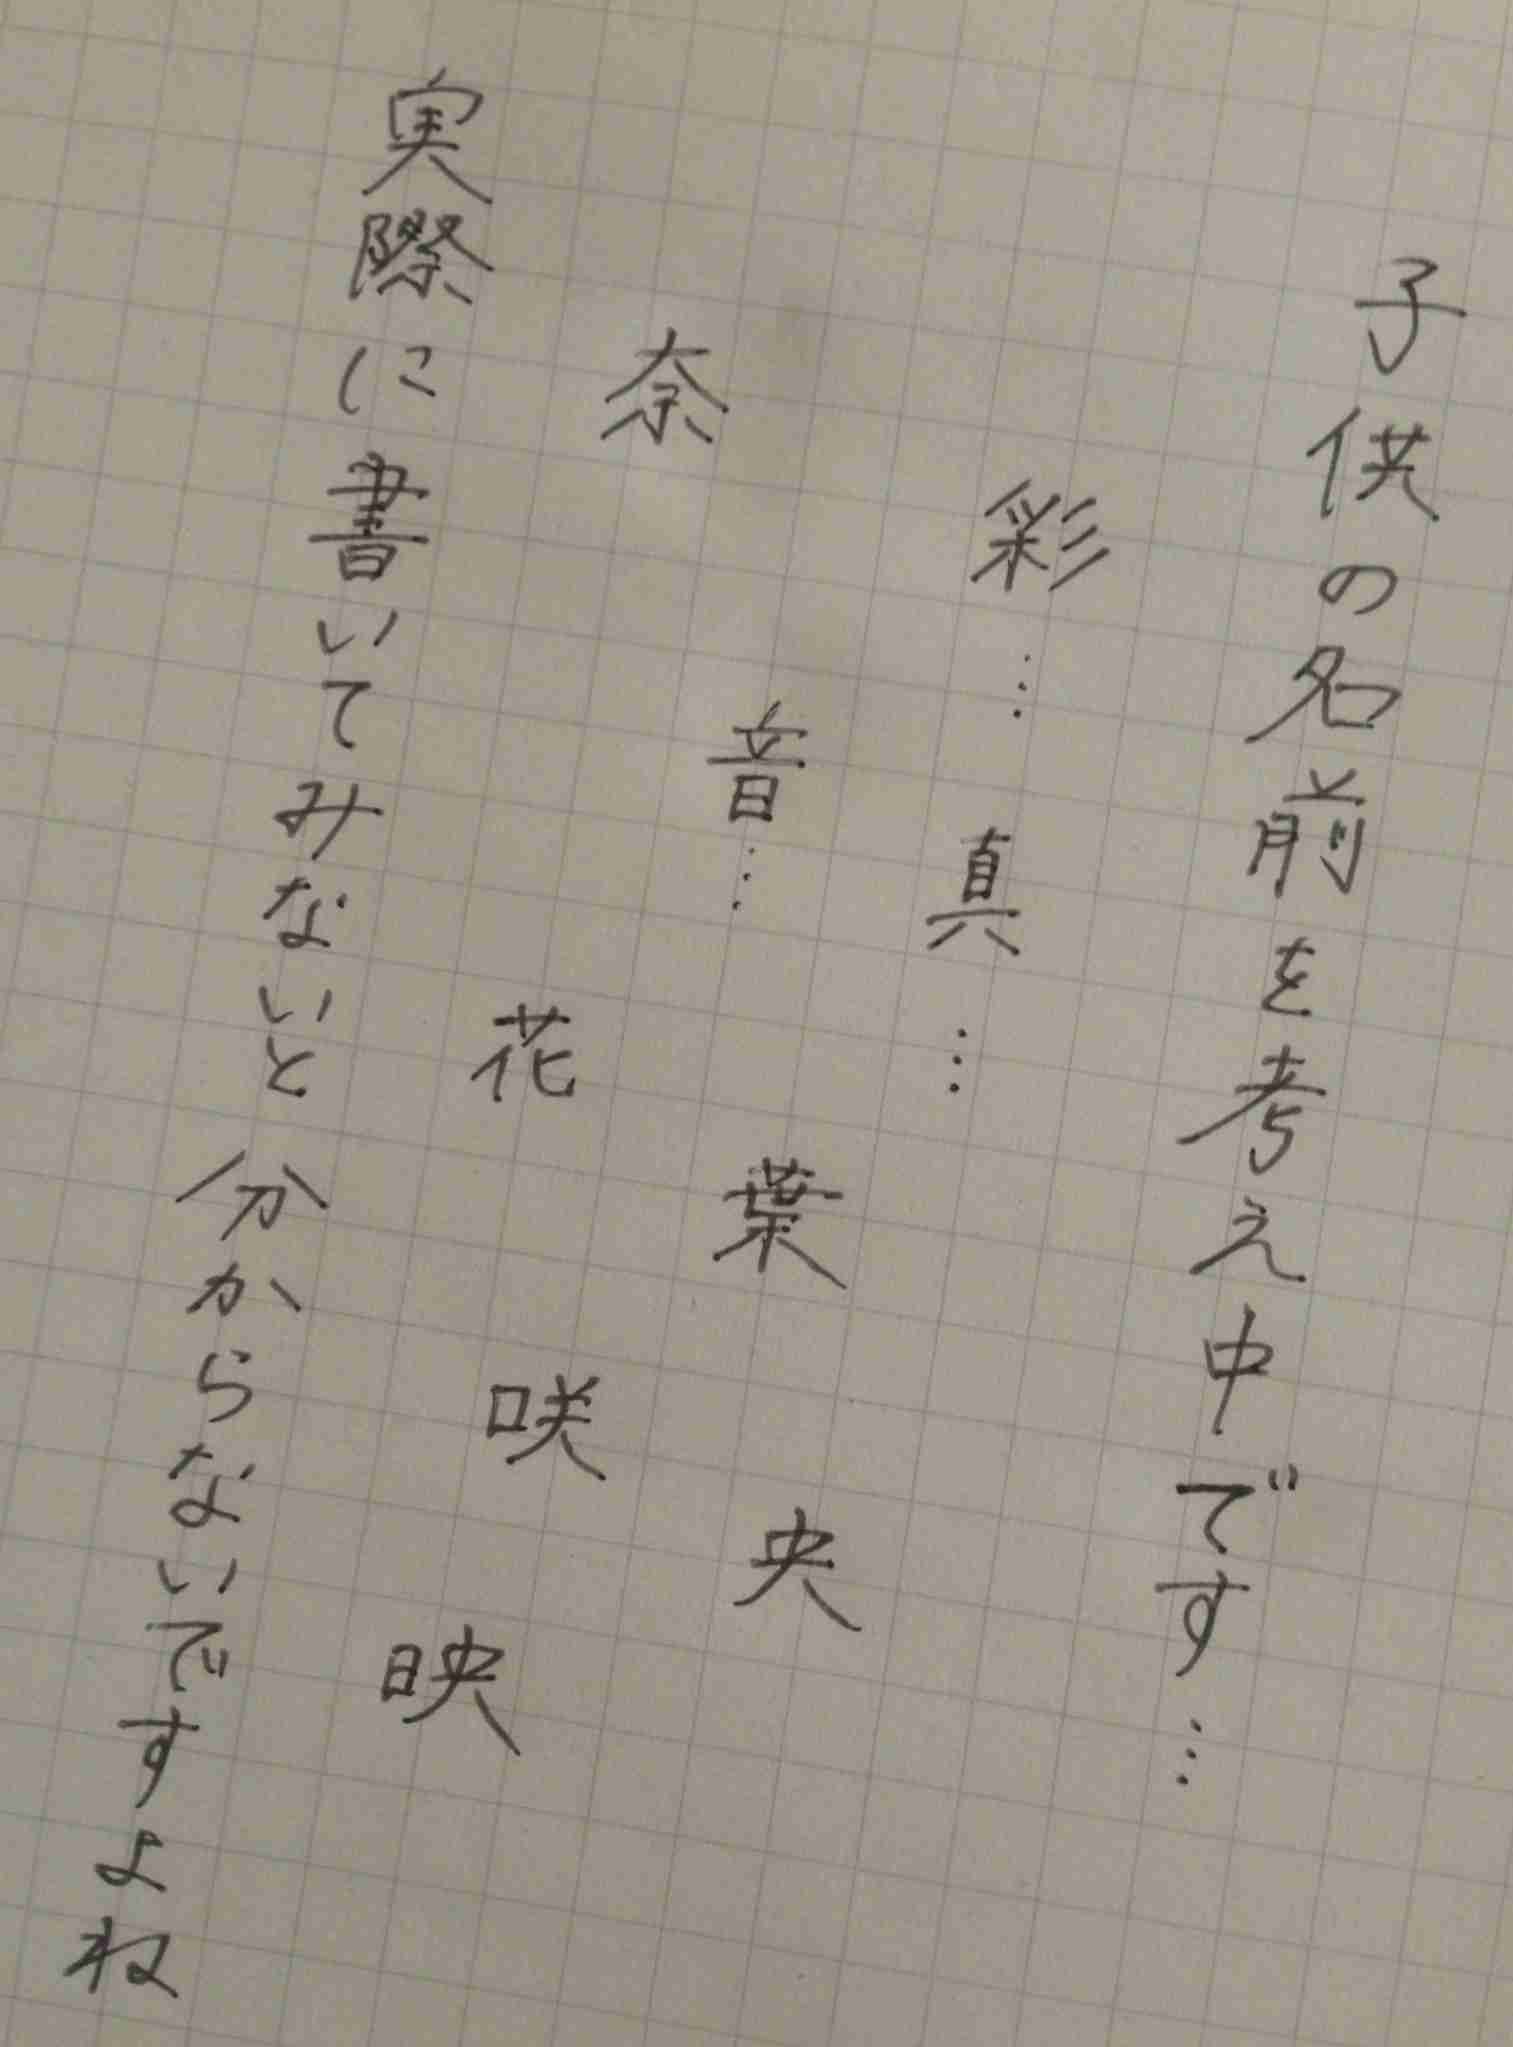 子供の名前を考え中です…
彩…真…
音…葉央
奈花咲映
実際に書いてみないと分からないですよね